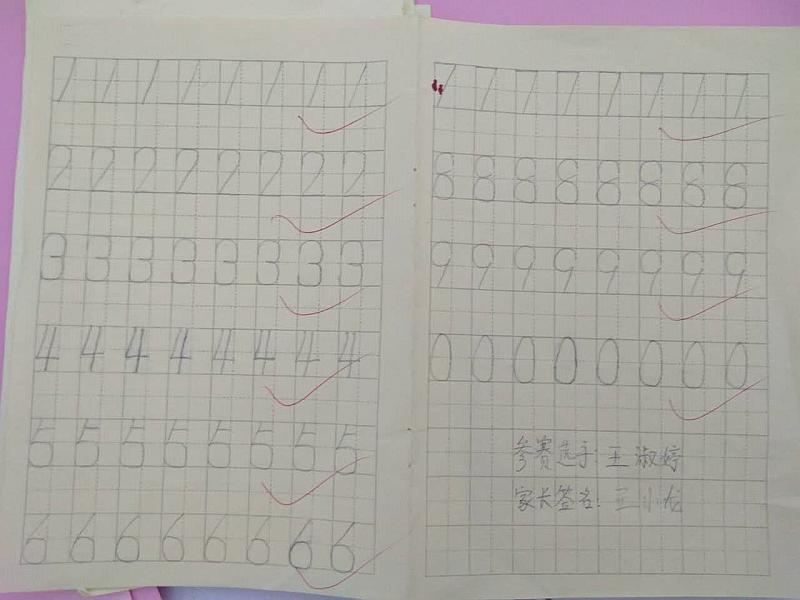 1 1 1 1 1 1 1 1
2 2 2 2 2 2 2 2
3 3 3 3 3 3 3 3
4 4 4 4 4 4 4 4
5 5 5 5 5 5 5 5
6 6 6 6 6 6 6 6
7 7 7 7 7 7 7 7
8 8 8 8 8 8 8 8
9 9 9 9 9 9 9 9
0 0 0 0 0 0 0 0
参赛选手:王淑婷
家长签名:王小龙